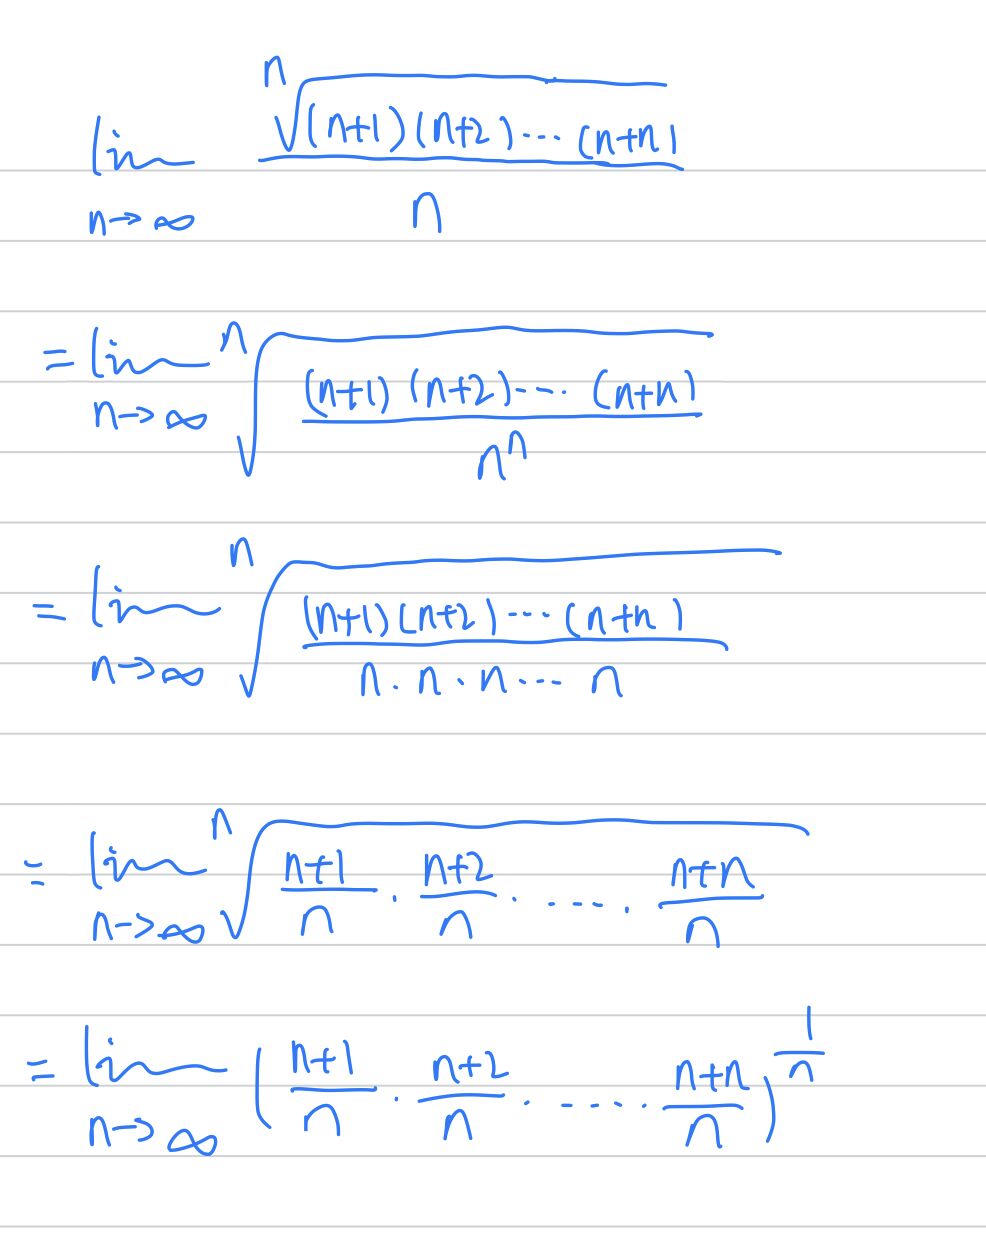 lim n→∞ ⁿ√((n+1)(n+2)⋯(n+n)) / n
= lim n→∞ ⁿ√((n+1)(n+2)⋯(n+n) / nⁿ)
= lim n→∞ ⁿ√((n+1)(n+2)⋯(n+n) / n·n·n⋯n)
= lim n→∞ ⁿ√((n+1)/n · (n+2)/n · ⋯ · (n+n)/n)
= lim n→∞ ((n+1)/n · (n+2)/n · ⋯ · (n+n)/n)^(1/n)